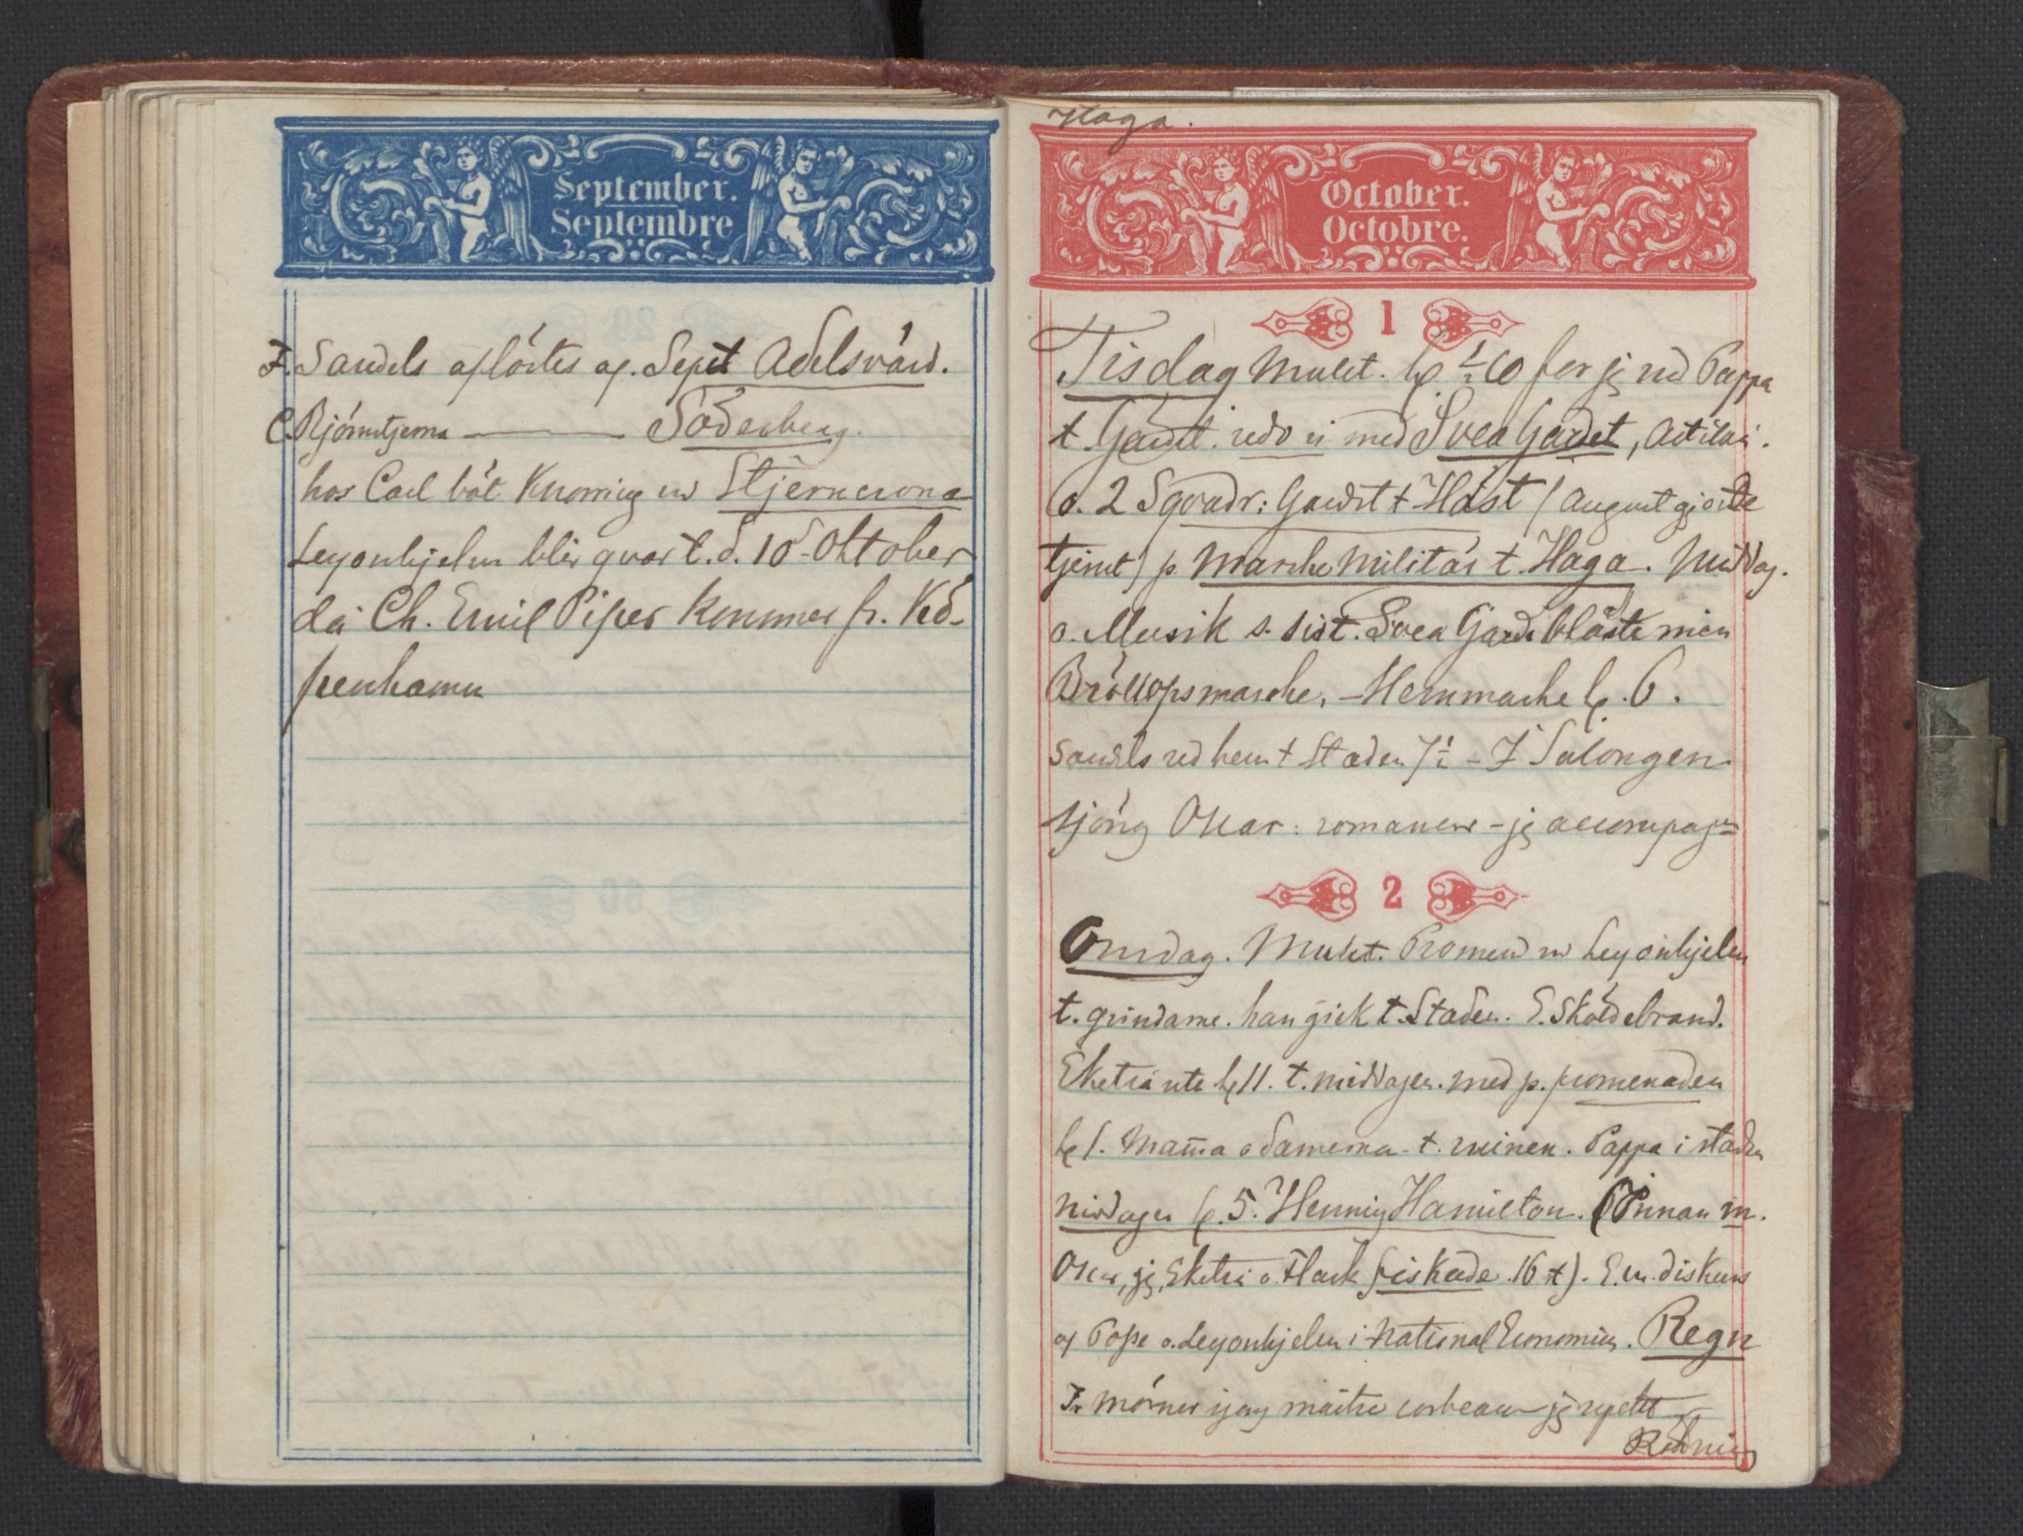 September.
Septembre
F. Sandels aflöstes af. Sept Adelsvärd.
C. Björnstjerna ——— Söderberg.
hos Carl böt Knorring m Stjerncrona
Leyonhjelm blir qvar t. d. 10 Oktober
då Ch. Emil Piper kommer fr. Kö-
penhamn
Haga.
October.
Octobre.
1
Tisdag Mulet. kl ½10 for jg med Pappa
t. Gärdt. redo vi med Svea Gardet, Artileri.
o. 2 Sqvadr: Gardet t Häst / August gjorde
tjenst) p. Marche Militär t. Haga. Middag.
o. Musik s. sist. Svea Garde blåste min
Bröllopsmarche. - Hemmarche kl. 6.
Sandels red hem t Staden 7½ - I Salongen
sjöng Oscar: romancer - jg accompag=
2
Onsdag. Mulet. Promen m Leyonhjelm
t. grindarne. han gick t. Staden. E. Sköldebrand.
Eketrä ute kl 11. t. middagen. med p. promenaden
kl 1. Mama o damerna t. ruinen. Pappa i staden
Middagen kl. 5. Henning Hamilton. (Innan m.
Oscar, jg, Eketrä o. Flack fiskade 16 st). E. m. diskurs
af Popse o. Leyonhjelm i National Economien. Regn
Fr Mörner sjöng maître corbeau jg spelte